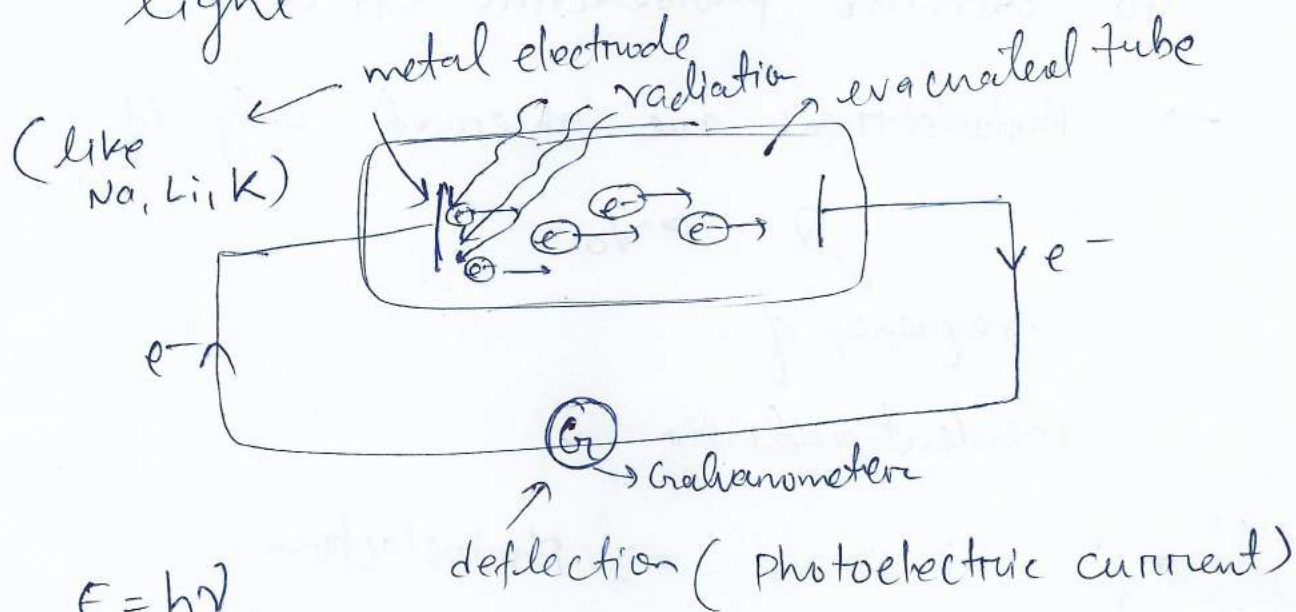 light
metal electrode
radiation
evacuated tube
(like
Na, Li, K)
e- e- e- e- e-
e-
e-
G
Galvanometer
deflection (photoelectric current)
E = hν